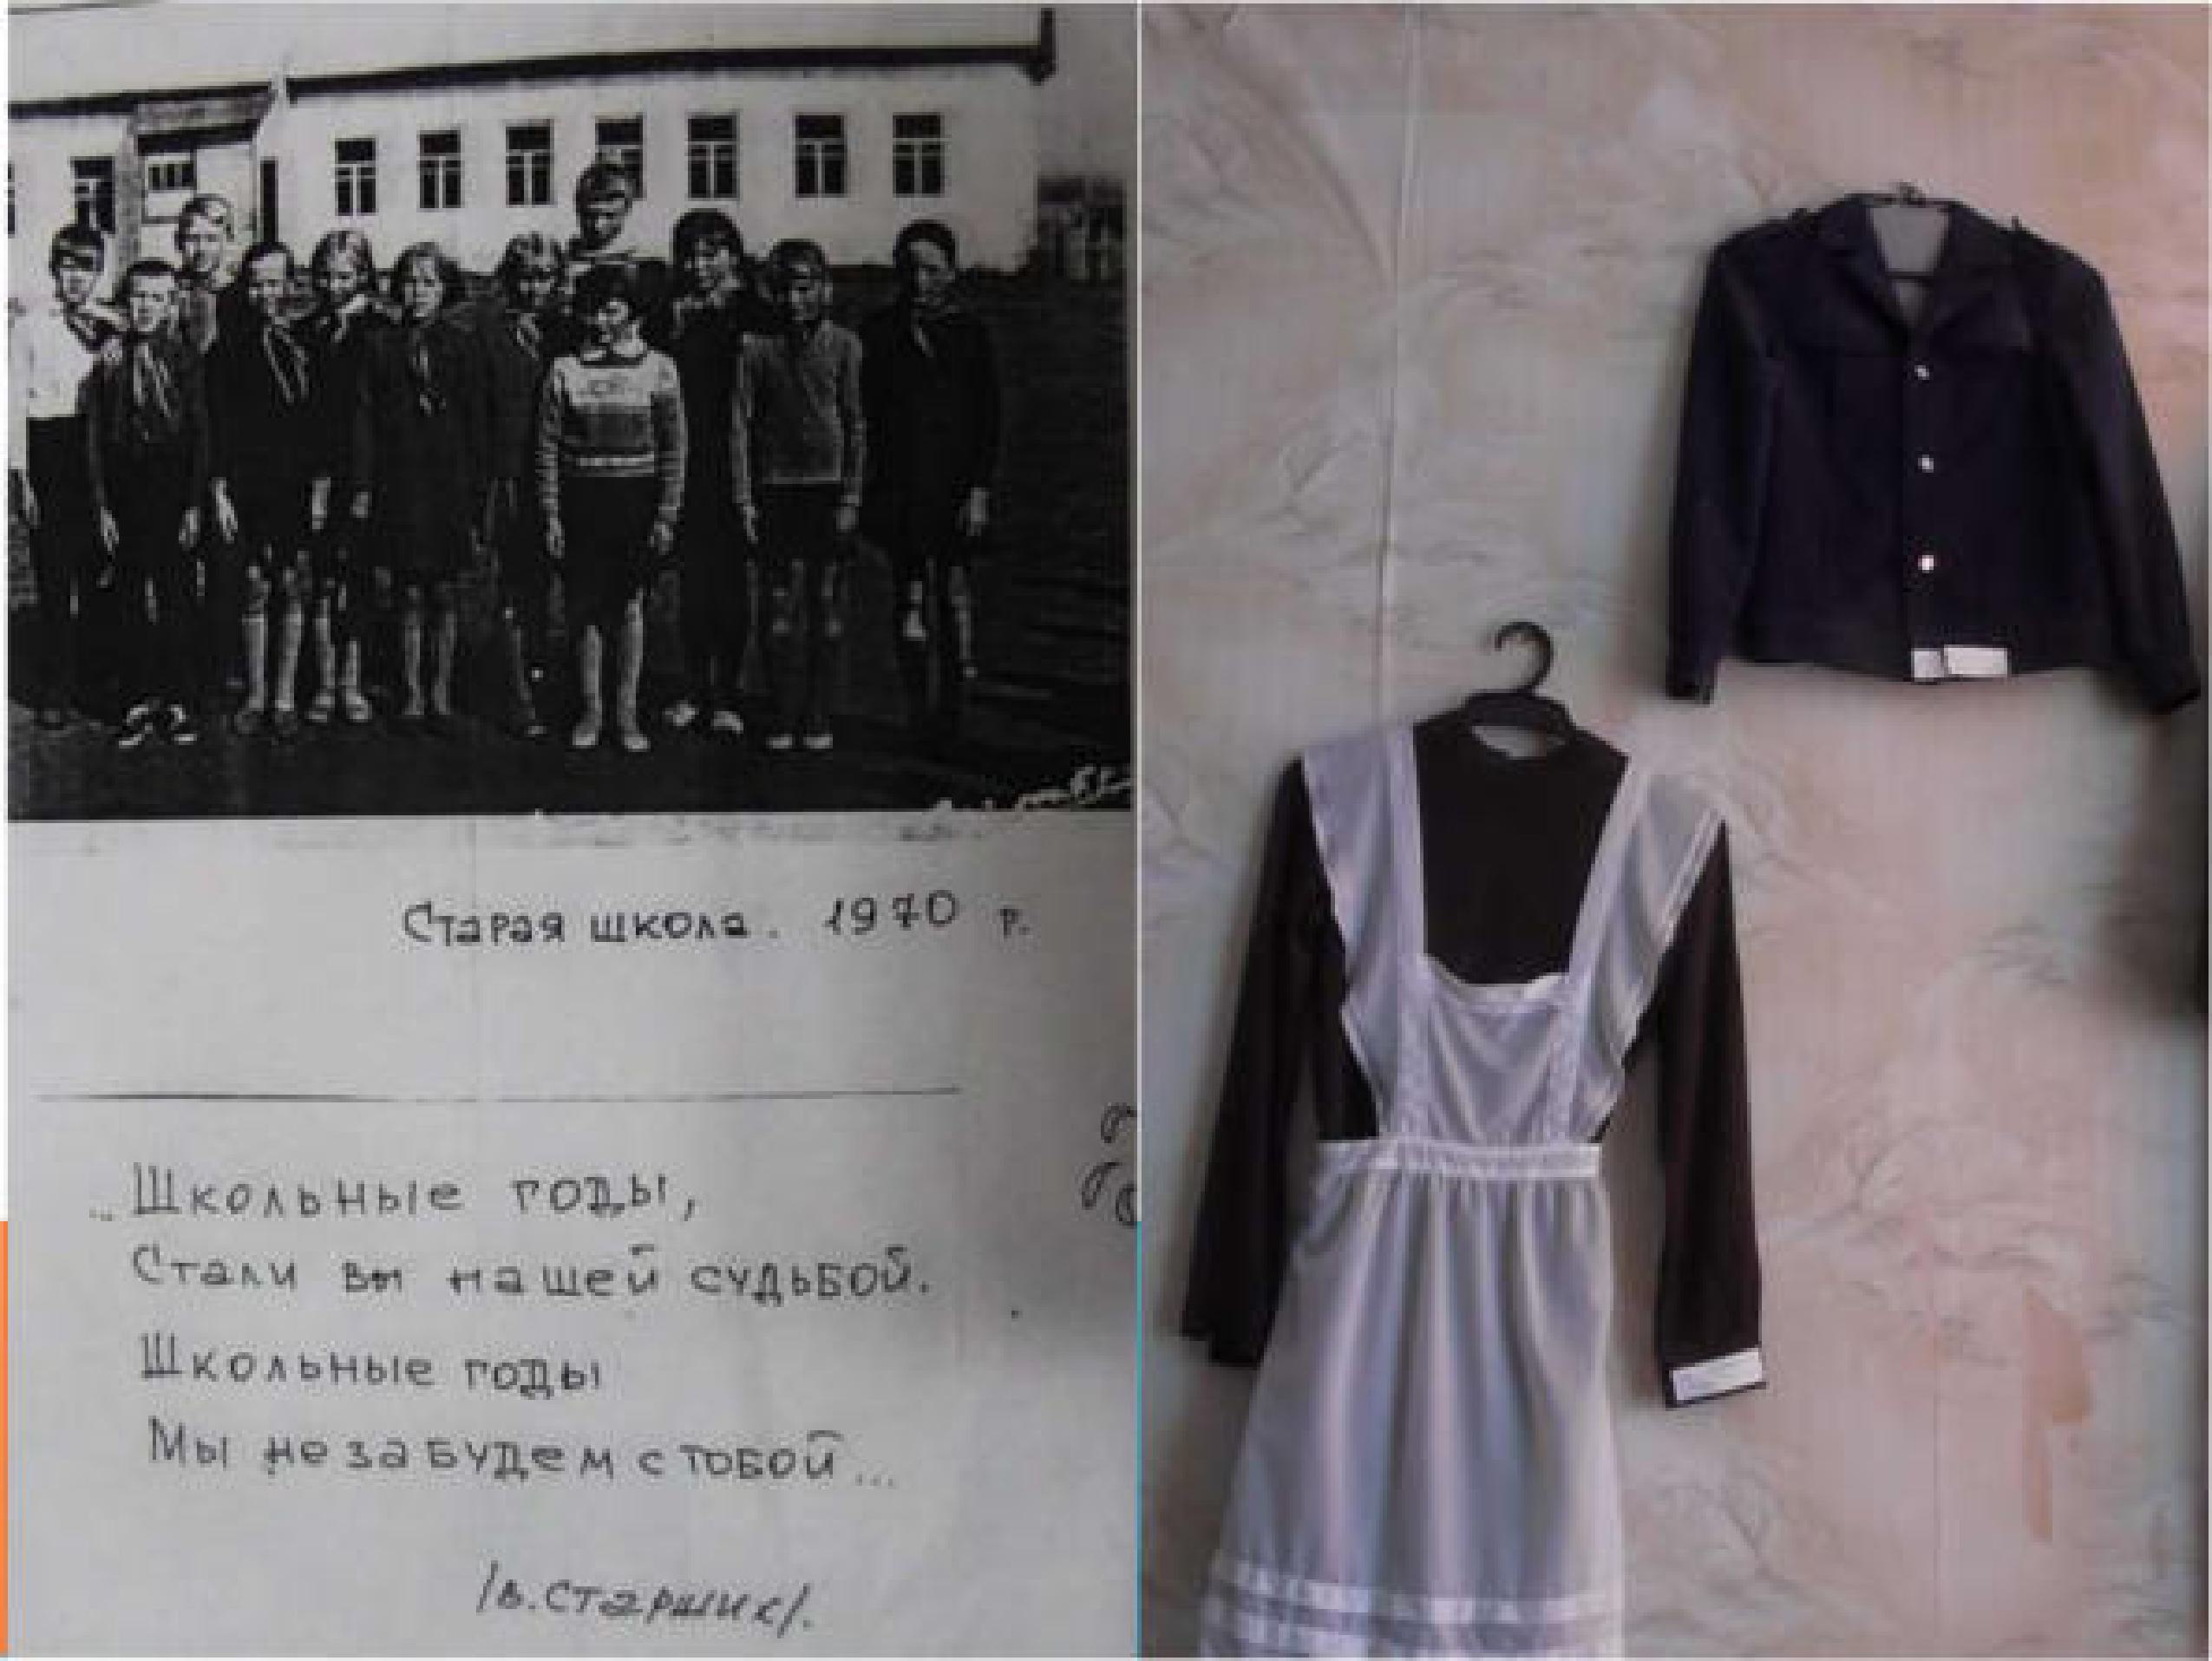 Старая школа. 1970 г.
... Школьные годы,
Стали вы нашей судьбой.
Школьные годы
Мы не забудем с тобой ...
/в. старшик/.